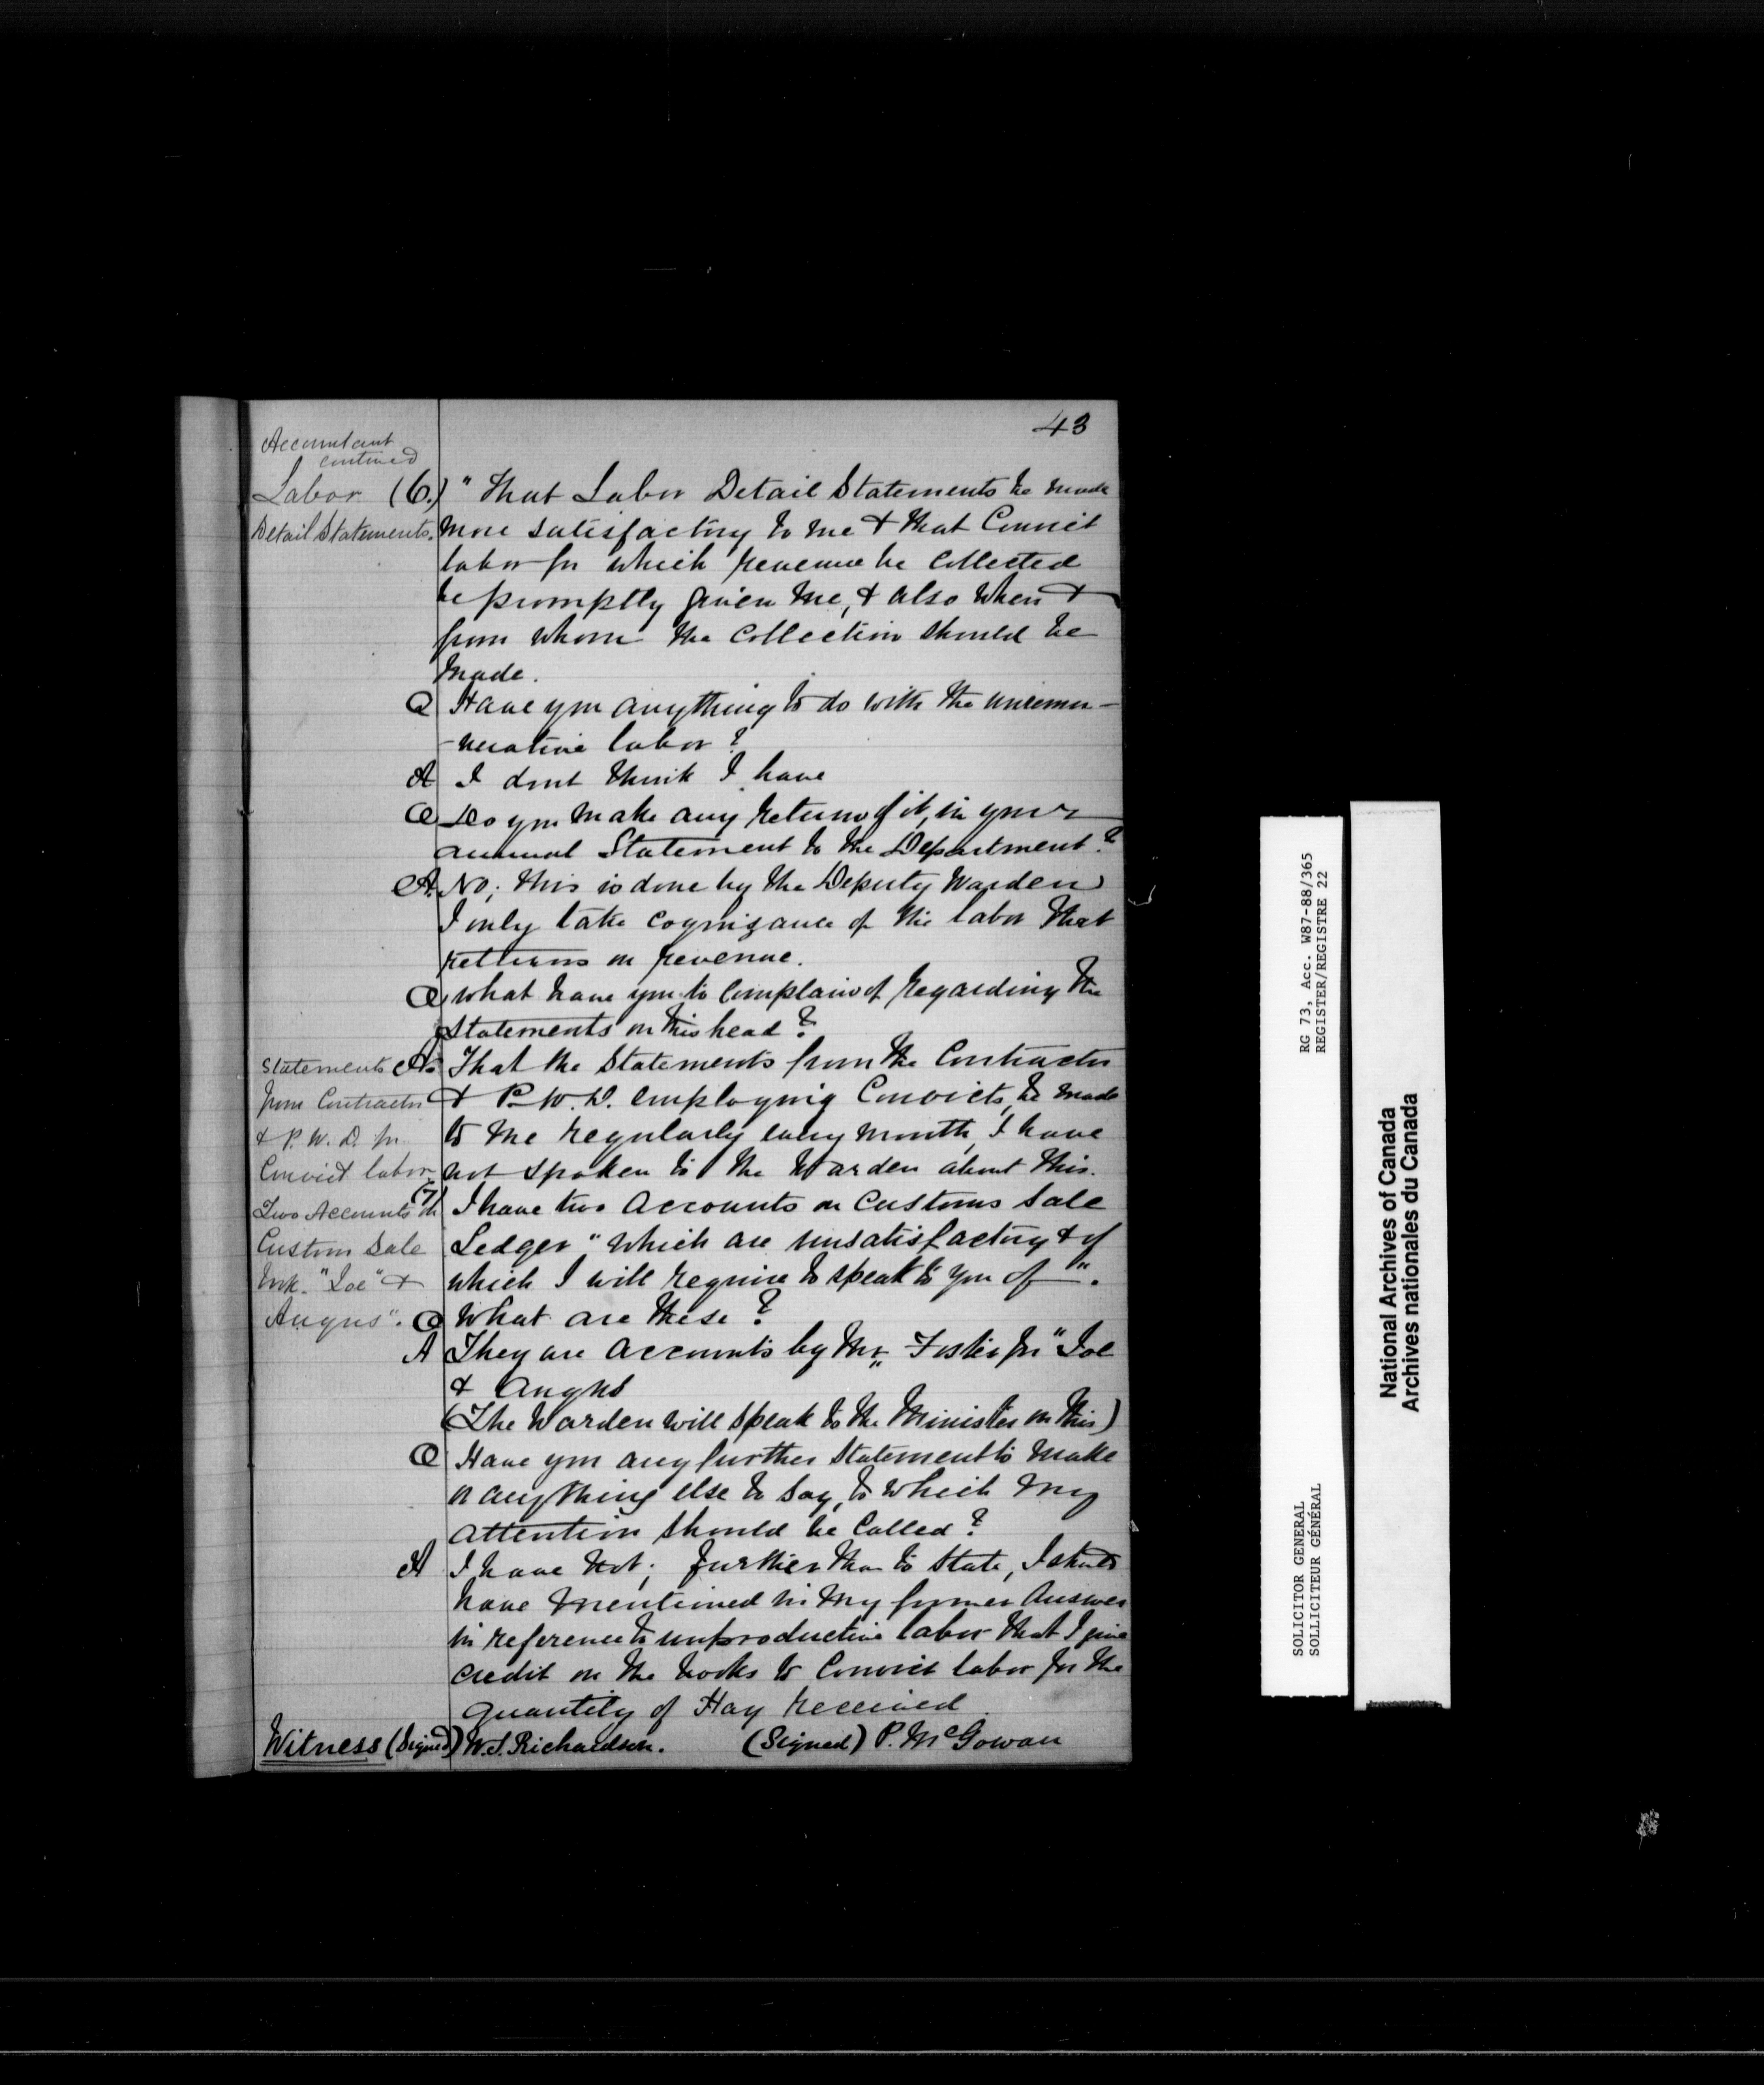 43
Accountant
continued
Labor (6.) "That Labor Detail Statements be made
Detail Statements. more satisfactory to me & that Convict
labor for which revenue be collected
be promptly given me, & also when &
from whom the collection should be
made.
Q Have you anything to do with the unremu-
-nerative labor?
A I dont think I have
Q Do you make any return of it, in your
annual Statement to the Department?
A. No; this is done by the Deputy Warden
I only take cognizance of the labor that
returns on revenue.
Q What have you to complain of regarding the
Statements on this head?
Statements A. That the Statements from the Contractor
from Contractor & P.W.D. employing Convicts, be made
& P.W.D. for to me regularly every month, I have
Convict labor not spoken to the Warden about this.
(7)
Two Accounts in I have two Accounts on Customs Sale
Custom Sale Ledger "which are unsatisfactory & of
Wk. "Joe" & which I will require to speak to you of".
Angus". Q What are these?
A They are Accounts by Mr. Foster for "Joe
& Angus
(The Warden will speak to the Minister on this)
Q Have you any further Statement to make
or anything else to say, to which my
attention should be called?
A I have not; further than to State, I should
have mentioned in my former answer
in reference to unproductive labor that I give
credit on the books to Convict labor for the
quantity of Hay received
Witness (Signed) W.S. Richardson. (Signed) P. McGowan
RG 73, Acc. W87-88/365
REGISTER/REGISTRE 22
SOLICITOR GENERAL
SOLLICITEUR GÉNÉRAL
National Archives of Canada
Archives nationales du Canada